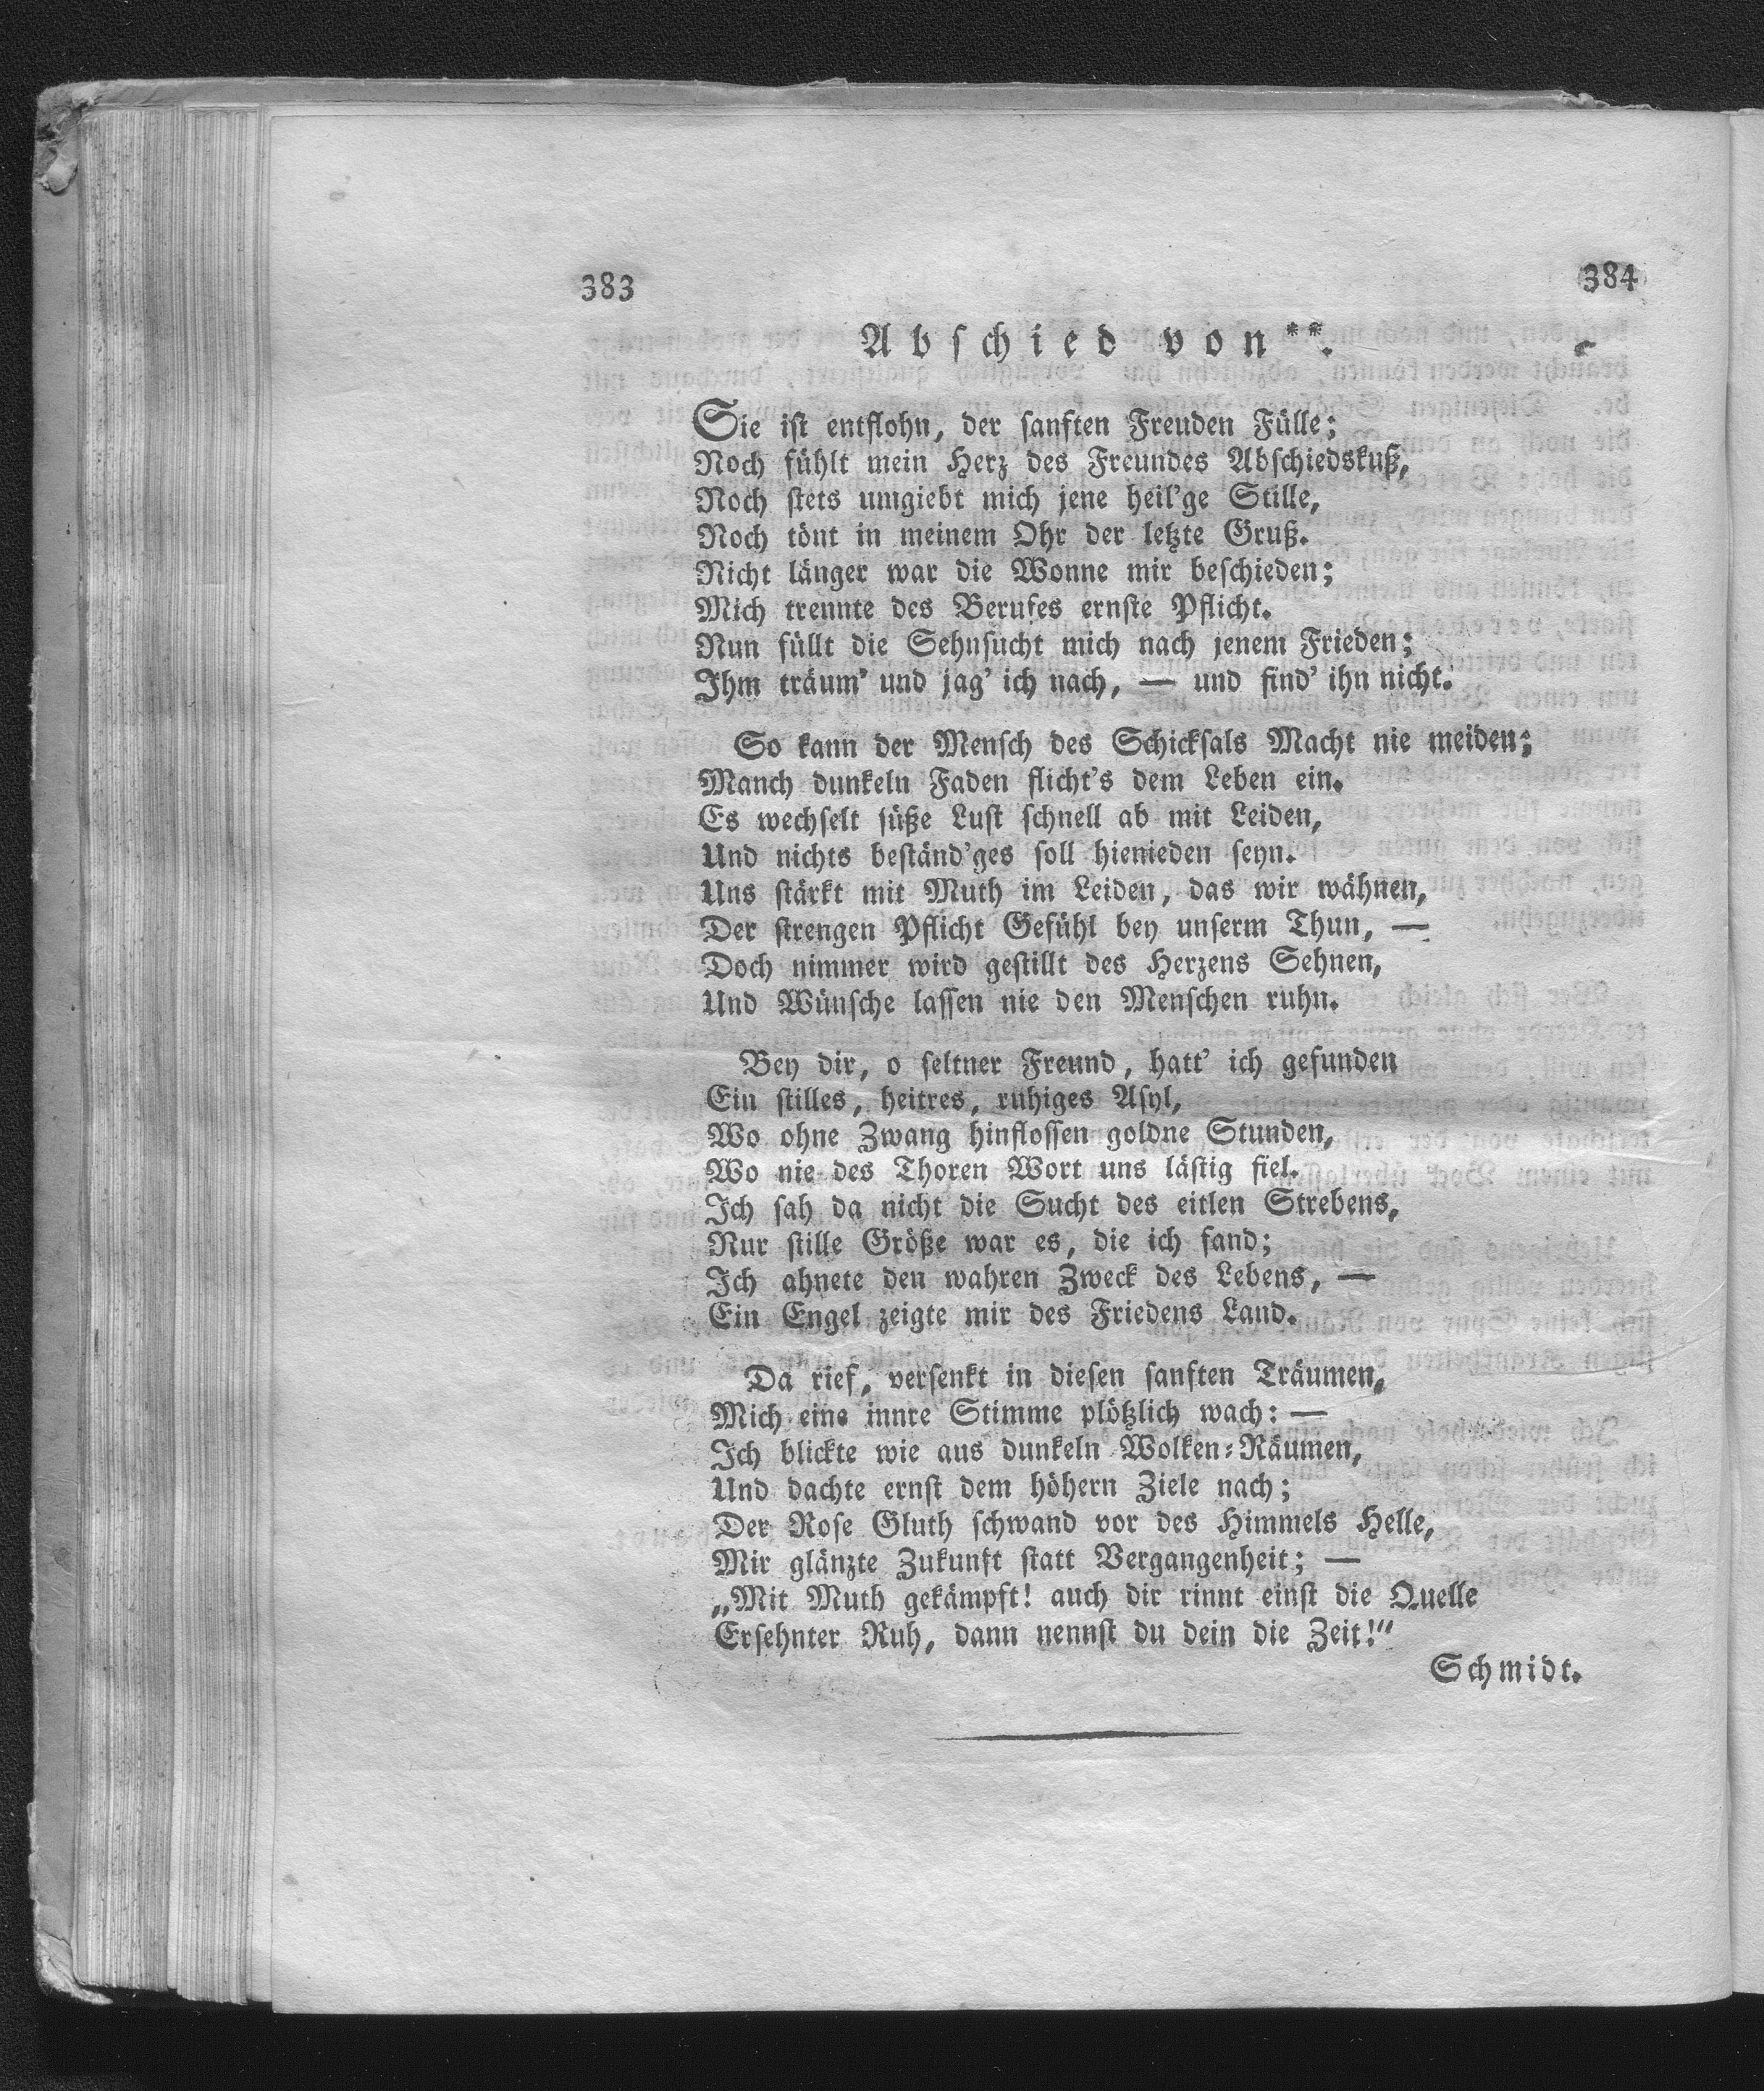 383
384
Abschied von **.
Sie ist entflohn, der sanften Freuden Fülle;
Noch fühlt mein Herz des Freundes Abschiedskuß,
Noch stets umgiebt mich jene heil'ge Stille,
Noch tönt in meinem Ohr der letzte Gruß.
Nicht länger war die Wonne mir beschieden;
Mich trennte des Berufes ernste Pflicht.
Nun füllt die Sehnsucht mich nach jenem Frieden;
Ihm träum' und jag' ich nach, — und find' ihn nicht.
So kann der Mensch des Schicksals Macht nie meiden;
Manch dunkeln Faden flicht's dem Leben ein.
Es wechselt süße Lust schnell ab mit Leiden,
Und nichts beständ'ges soll hienieden seyn.
Uns stärkt mit Muth im Leiden, das wir wähnen,
Der strengen Pflicht Gefühl bey unserm Thun, —
Doch nimmer wird gestillt des Herzens Sehnen,
Und Wünsche lassen nie den Menschen ruhn.
Bey dir, o seltner Freund, hatt' ich gefunden
Ein stilles, heitres, ruhiges Asyl,
Wo ohne Zwang hinflossen goldne Stunden,
Wo nie des Thoren Wort uns lästig fiel.
Ich sah da nicht die Sucht des eitlen Strebens,
Nur stille Größe war es, die ich fand;
Ich ahnete den wahren Zweck des Lebens, —
Ein Engel zeigte mir des Friedens Land.
Da rief, versenkt in diesen sanften Träumen,
Mich eine innre Stimme plötzlich wach: —
Ich blickte wie aus dunkeln Wolken-Räumen,
Und dachte ernst dem höhern Ziele nach;
Der Rose Gluth schwand vor des Himmels Helle,
Mir glänzte Zukunft statt Vergangenheit; —
„Mit Muth gekämpft! auch dir rinnt einst die Quelle
Ersehnter Ruh, dann nennst du dein die Zeit!“
Schmidt.